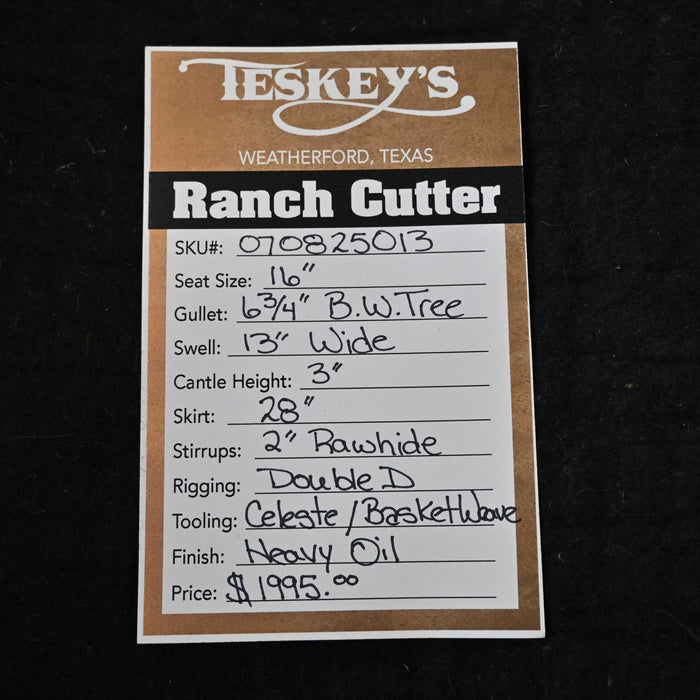 TESKEY'S
WEATHERFORD, TEXAS
Ranch Cutter
SKU#: 070825013
Seat Size: 16"
Gullet: 6 3/4" B.W. Tree
Swell: 13" Wide
Cantle Height: 3"
Skirt: 28"
Stirrups: 2" Rawhide
Rigging: Double D
Tooling: Celeste / BasketWeave
Finish: Heavy Oil
Price: $1995.00